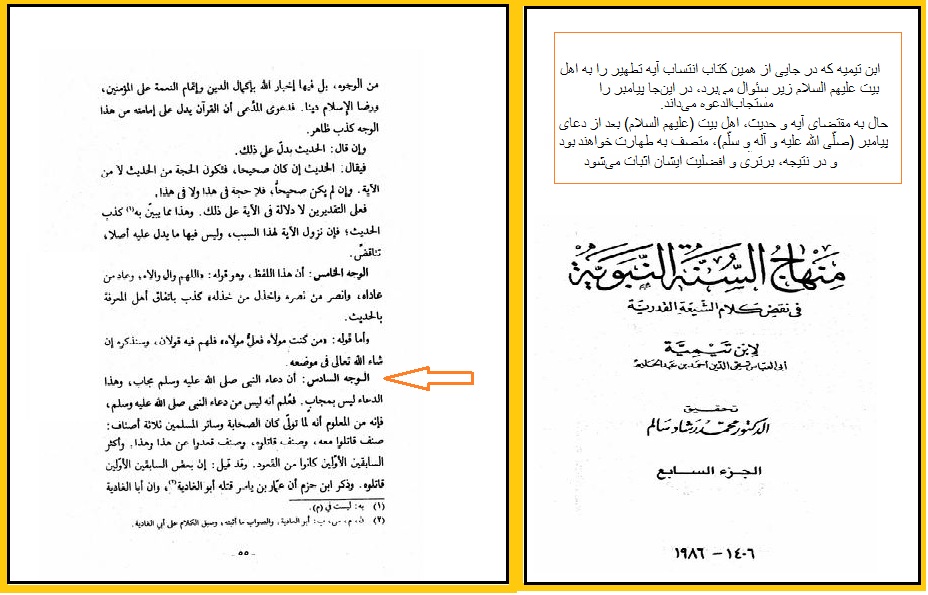 ابن تیمیه که در جایی از همین کتاب انتساب آیه تطهیر را به اهل
بیت علیهم السلام زیر سئوال می‌برد، در این‌جا پیامبر را
مستجاب‌الدعوه می‌داند.
حال به مقتضای آیه و حدیث، اهل بیت (علیهم السلام) بعد از دعای
پیامبر (صلّی الله علیه و آله و سلّم)، متصف به طهارت خواهند بود
و در نتیجه، برتری و افضلیت ایشان اثبات می‌شود
منهاج السنة النبوية
في نقض كلام الشيعة القدرية
لابن تيمية
أبي العباس تقي الدين أحمد بن عبد الحليم
تحقيق
الدكتور محمد رشاد سالم
الجزء السابع
١٤٠٦ - ١٩٨٦
من الوجوه، بل فيها إخبار الله بإكمال الدين وإتمام النعمة على المؤمنين،
ورضا الإسلام دينا. فدعوى المدّعى أن القرآن يدل على إمامته من هذا
الوجه كذب ظاهر.
وإن قال: الحديث يدلّ على ذلك.
فيقال: الحديث إن كان صحيحا، فتكون الحجة من الحديث لا من
الآية. وإن لم يكن صحيحاً، فلا حجة فى هذا ولا فى هذا.
فعلى التقديرين لا دلالة فى الآية على ذلك. وهذا مما يبيّن به(١) كذب
الحديث؛ فإن نزول الآية لهذا السبب، وليس فيها ما يدل عليه أصلا،
تناقضٌ.
الوجه الخامس: أن هذا اللفظ، وهو قوله: «اللهم وال من والاه، وعاد من
عاداه، وانصر من نصره، واخذل من خذله» كذب باتفاق أهل المعرفة
بالحديث.
وأما قوله: «من كنت مولاه فعلىٌّ مولاه» فلهم فيه قولان، وسنذكره إن
شاء الله تعالى فى موضعه.
الوجه السادس: أن دعاء النبى صلى الله عليه وسلم مجاب، وهذا
الدعاء ليس بمجابٍ. فعُلم أنه ليس من دعاء النبى صلى الله عليه وسلم،
فإنه من المعلوم أنه لما تولّى كان الصحابة وسائر المسلمين ثلاثة أصناف:
صنف قاتلوا معه، وصنف قاتلوه، وصنف قعدوا عن هذا وهذا. وأكثر
السابقين الأوّلين كانوا من القعود. وقد قيل: إن بعض السابقين الأوّلين
قاتلوه. وذكر ابن حزم أن عمّار بن ياسر قتله أبو الغادية(٢)، وأن أبا الغادية
(١) به: ليست فى (م).
(٢) ن، م، س، ب: أبو العادية، والصواب ما أثبته، وسبق الكلام على أبي الغادية.
-٥٥-